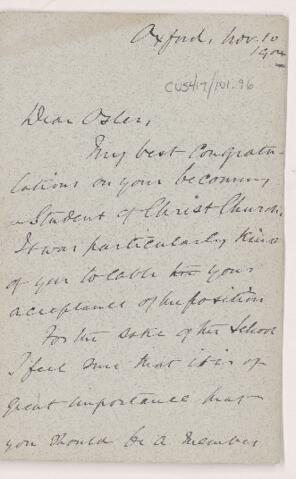 Oxford, Nov. 10
1904
CUS417/101.96
Dear Osler,
My best congratu-
lations on your becoming
a Student of Christ Church.
It was particularly kind
of you to cable your
acceptance of the position
For the sake of the School
I feel sure that it is of
great importance that
you should be a member